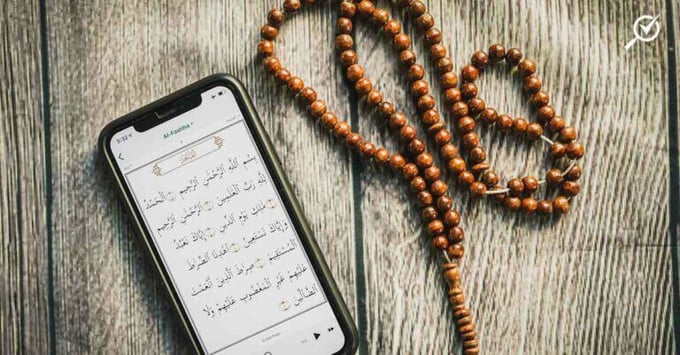 5:32
Al-Faatiha
الفاتحة
بِسْمِ اللَّهِ الرَّحْمَٰنِ الرَّحِيمِ ۝ الْحَمْدُ
لِلَّهِ رَبِّ الْعَالَمِينَ ۝ الرَّحْمَٰنِ الرَّحِيمِ
۝ مَٰلِكِ يَوْمِ الدِّينِ ۝ إِيَّاكَ نَعْبُدُ
وَإِيَّاكَ نَسْتَعِينُ ۝ اهْدِنَا الصِّرَاطَ
الْمُسْتَقِيمَ ۝ صِرَاطَ الَّذِينَ أَنْعَمْتَ
عَلَيْهِمْ غَيْرِ الْمَغْضُوبِ عَلَيْهِمْ وَلَا
الضَّالِّينَ ۝